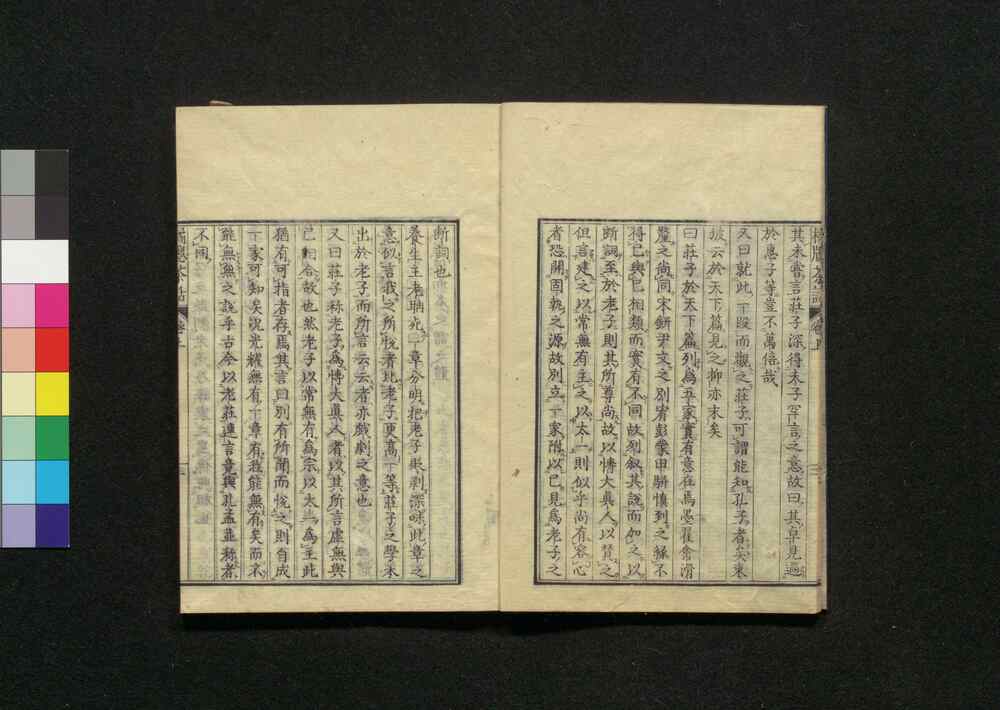 其未嘗言莊子深得夫子罕言之意故曰其卓見過
於惠子等豈不萬倍哉
又曰就此一段而觀之莊子可謂能知孔子者矣東
坡云於天下篇見之抑亦末矣
曰莊子於天下篇列為五家實有意在焉墨翟禽滑
釐之尚同宋鈃尹文之別宥彭蒙田駢慎到之緣不
得已與已相類而實有不同故列叙其說而加之以
斷詞至於老子則其所尊尚故以博大真人以贊之
但言建之以常無有主之以太一則似乎尚有容心
者恐開固執之源故別立一家附以已見為老子之
斷詞也
養生主老聃死一章分明把老子貶剥深味此章之
意似言我之所悅者比老子更高一等莊子之學未
出於老子而所言云云者亦戲劇之意也
又曰莊子称老子為博大真人者以其所言虛無與
己相合故也然老子以常無有為宗以太一為主此
猶有可指者存焉其言曰別有所聞而悅之則自成
一家可知矣況光耀無有一章有我能無有矣而不
能無無之說乎古今以老莊連言竟與孔孟並称者
不同